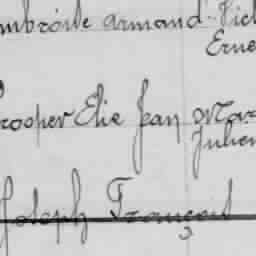 mbroise Armand Vict
Erne
rosper Elie Jean Mar
Julien
Joseph François